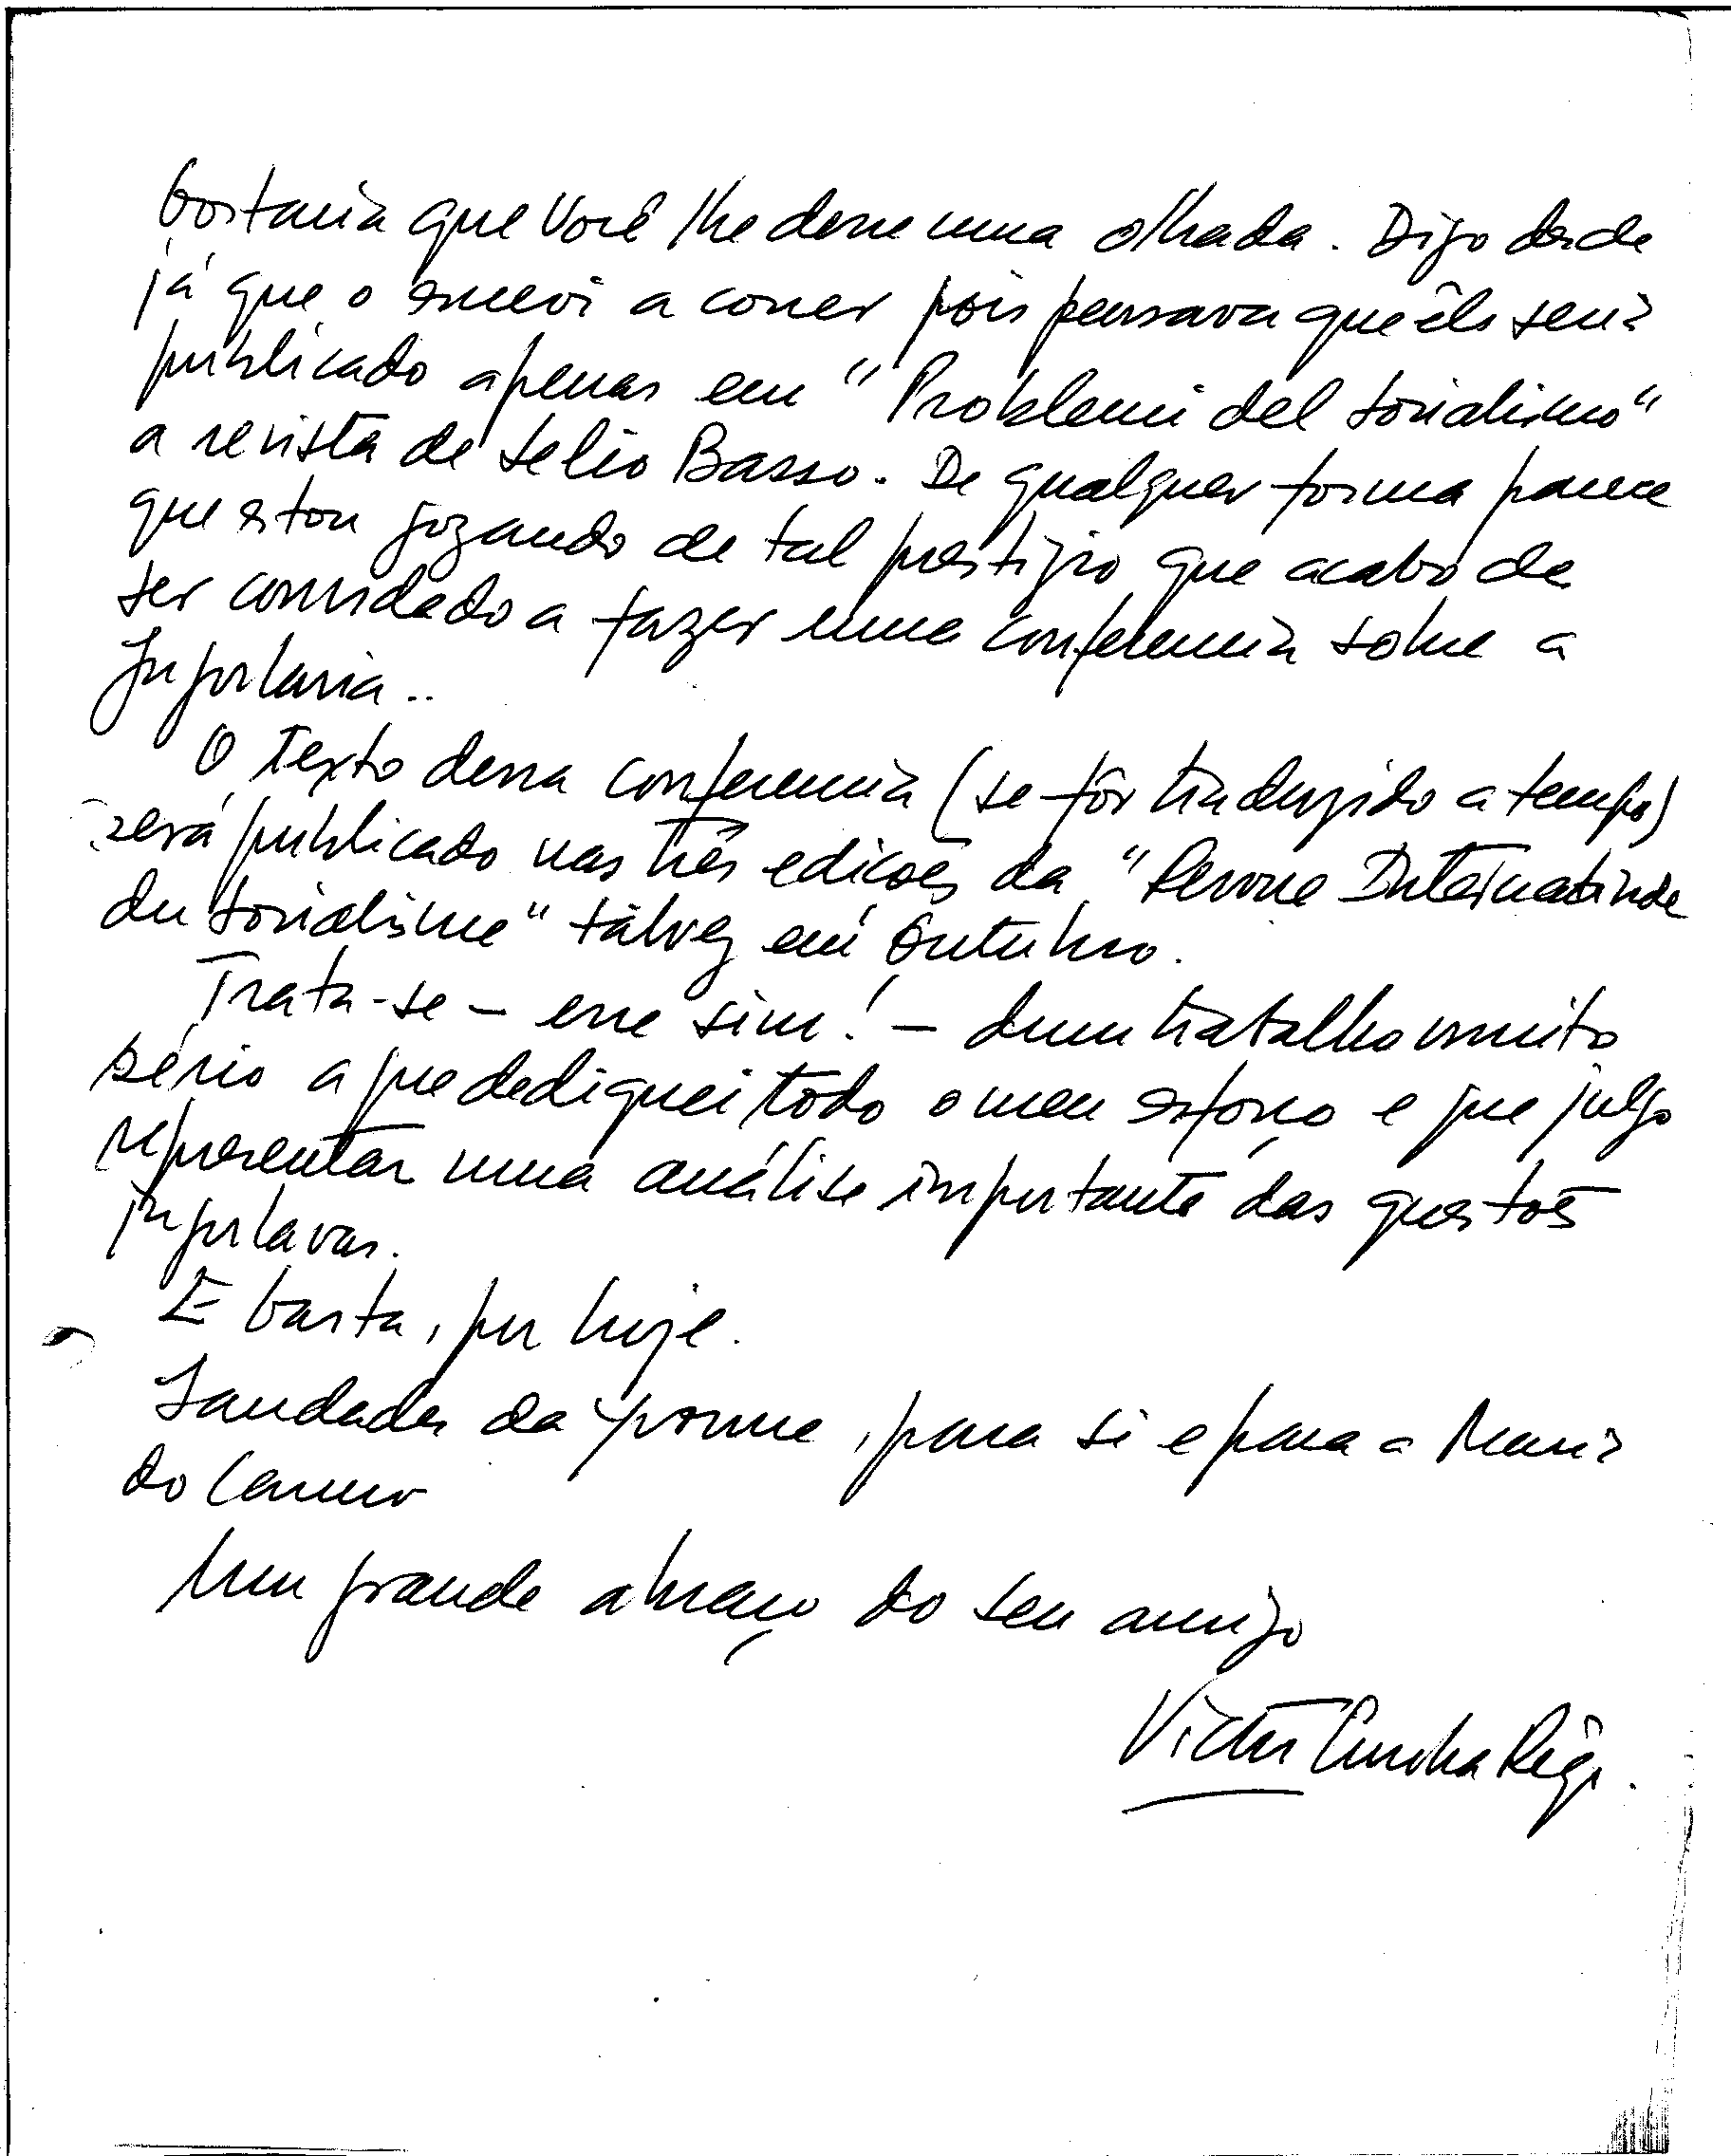 Gostaria que Você lhe desse uma olhada. Digo desde
já que o escrevi a correr pois pensava que êle seria
publicado apenas em "Problemi del Socialismo"
a revista de Lelio Basso. De qualquer forma parece
que estou gozando de tal prestígio que acabo de
ser convidado a fazer uma conferencia sobre a
Jugoslavia..
O texto dessa conferencia (se fôr traduzido a tempo)
será publicado nas três edicoes da "Revue Internationale
du Socialisme" talvez em Outubro.
Trata-se - esse sim! - dum trabalho muito
sério a que dediquei todo o meu esforço e que julgo
representar uma análise importante das questoēs
jugoslavas.
E basta, por hoje.
Saudades da Yvonne, para si e para a Maria
do Carmo
Um grande abraço do seu amigo
Victor Cunha Rêgo.